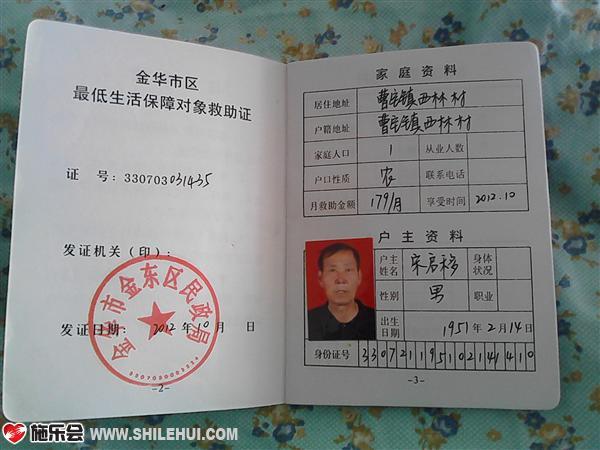 金华市区
最低生活保障对象救助证
证 号:330703031435
发证机关(印):
发证日期: 2012年10月 日
金华市金东区民政局
-2-
家庭资料
居住地址 曹宅镇西林村
户籍地址 曹宅镇西林村
家庭人口 1 从业人数
户口性质 农 联系电话
月救助金额 179/月 享受时间 2012.10
户主资料
户主姓名 宋启移 身体状况
性别 男 职业
出生日期 1951年2月14日
身份证号 330721195102141410
-3-
施乐会 WWW.SHILEHUI.COM